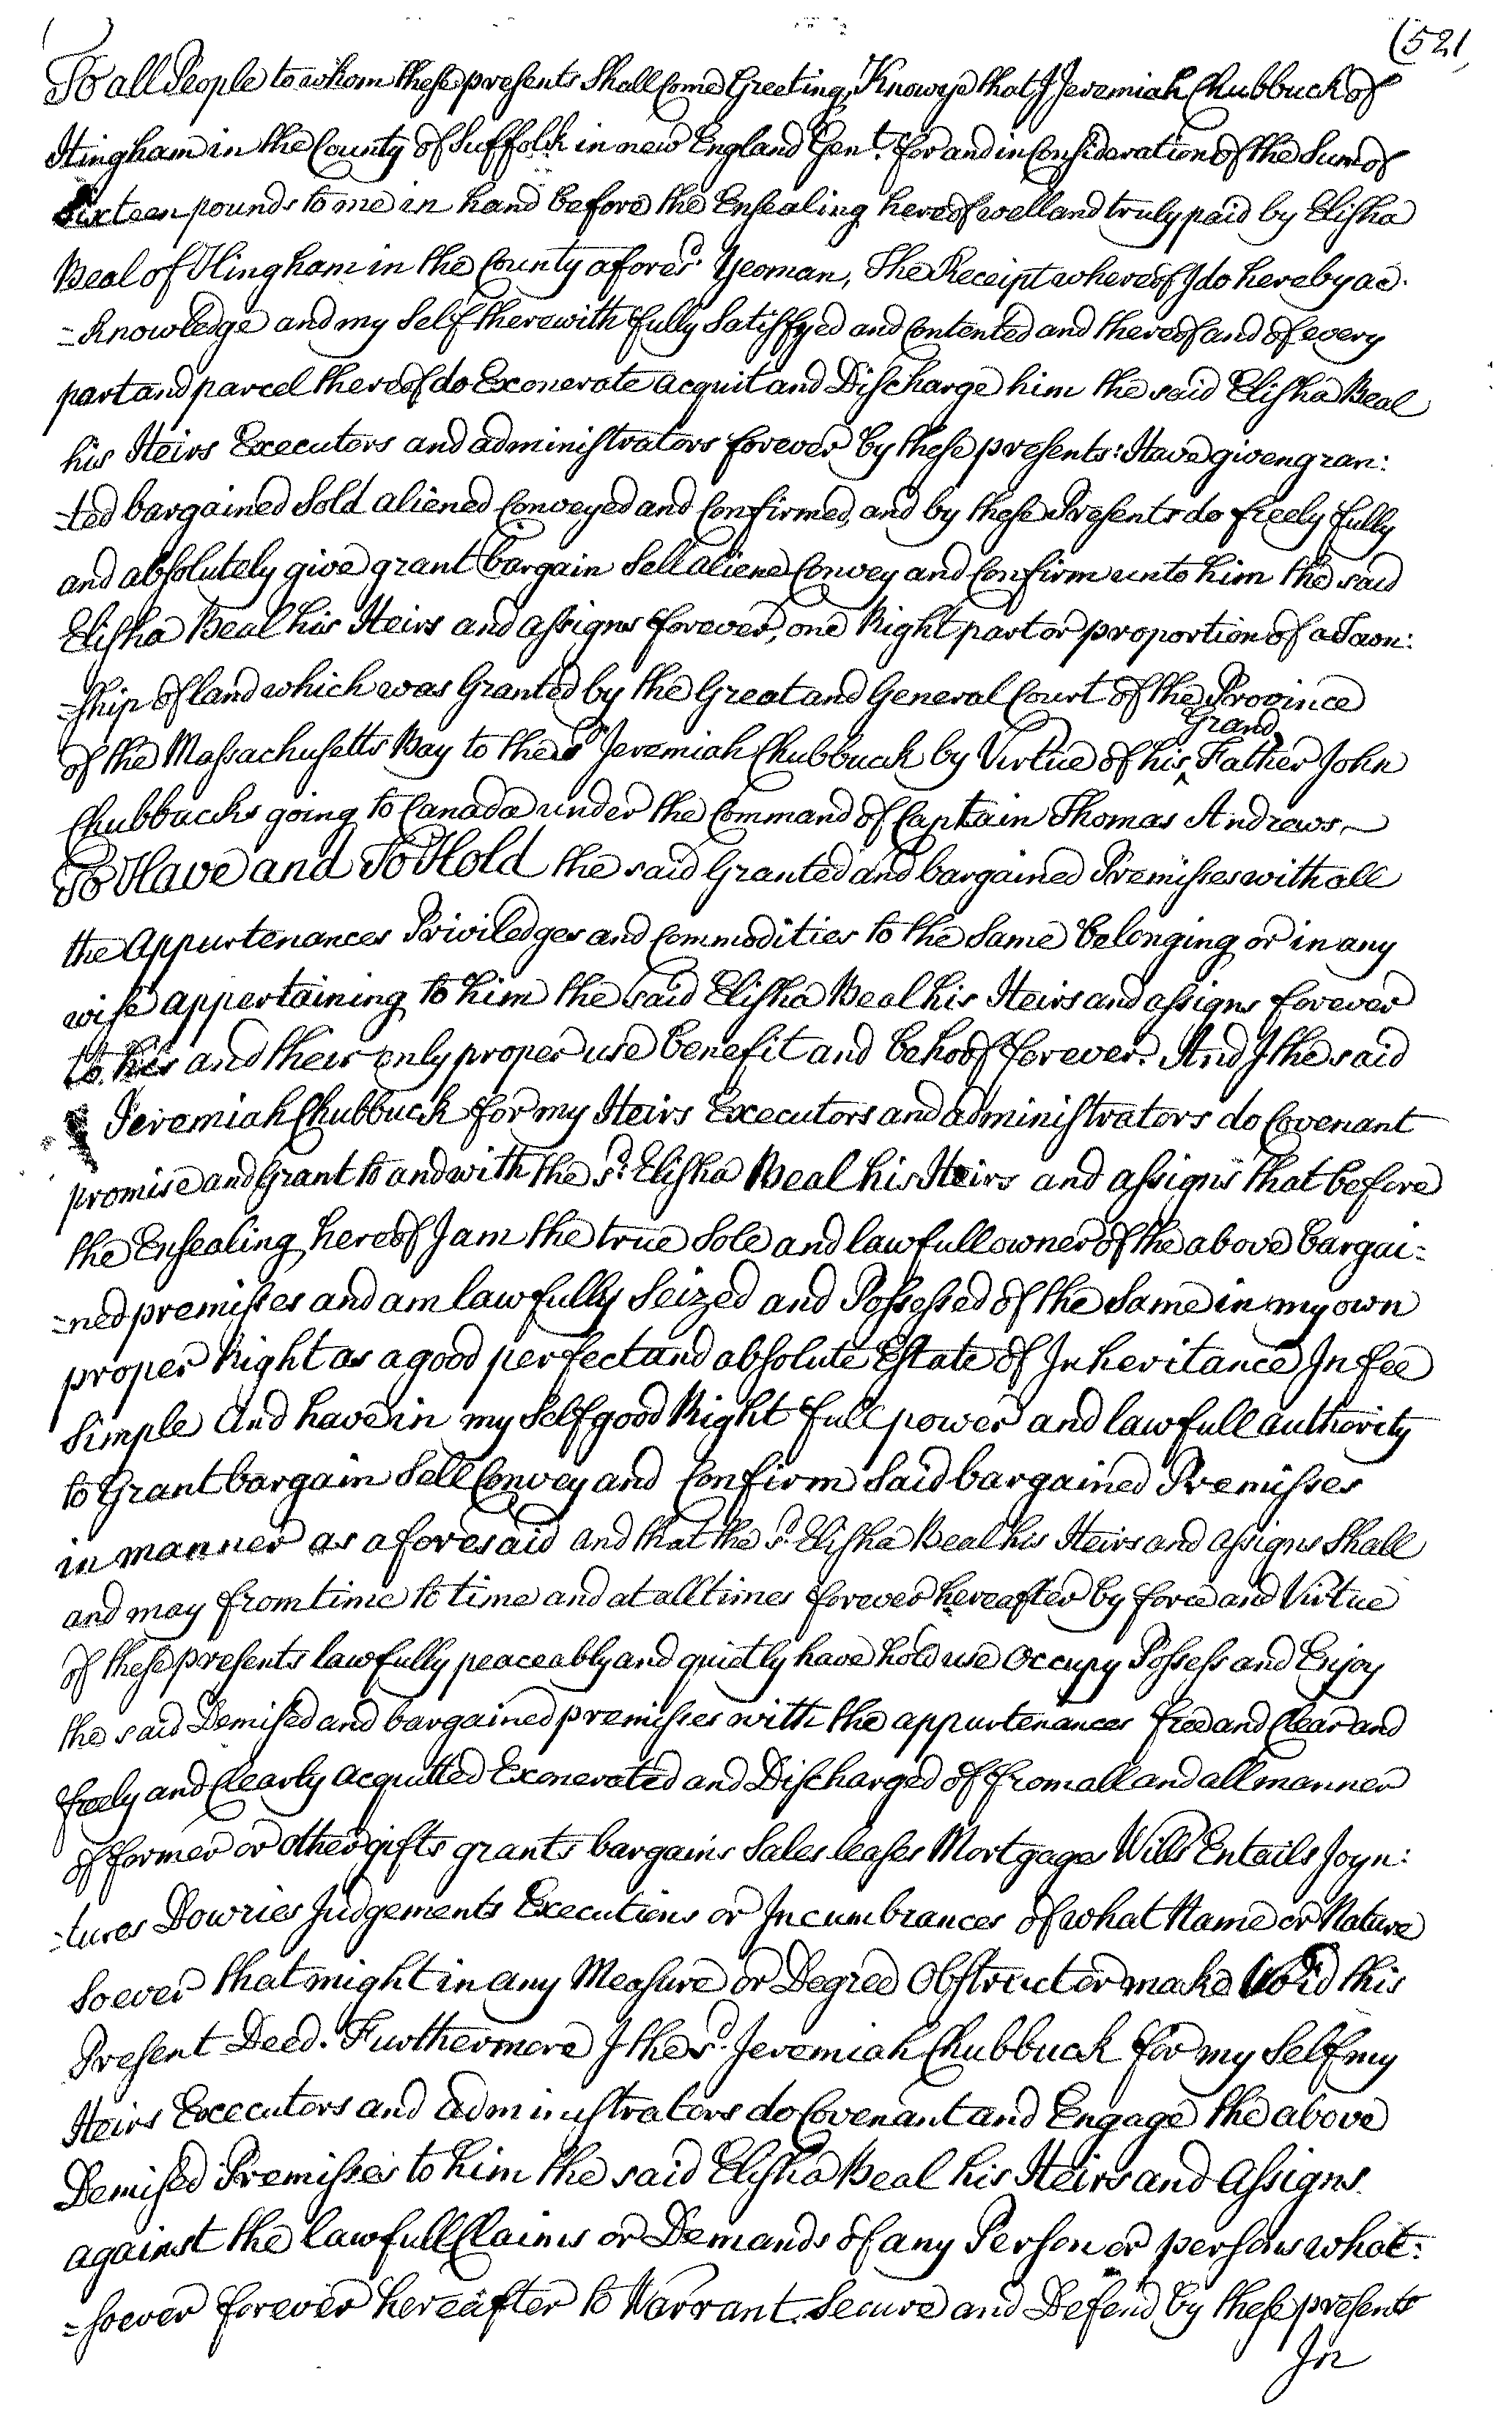 (521
To all People to whom these presents Shall Come Greeting, Know ye that I Jeremiah Chubbuck of
Hingham in the County of Suffolk in new England Gent. for and in Consideration of the Sum of
Sixteen pounds to me in hand before the Ensealing hereof well and truly paid by Elisha
Beal of Hingham in the County afores.d Yeoman, The Receipt whereof I do hereby ac-
-knowledge and my Self therewith fully Satisfyed and Contented and thereof and of every
part and parcel thereof do Exonerate acquit and Discharge him the said Elisha Beal
his Heirs Executors and administrators forever by these presents: Have given gran:
-ted bargained Sold aliened Conveyed and Confirmed, and by these Presents do freely fully
and absolutely give grant bargain Sell aliene Convey and Confirm unto him the said
Elisha Beal his Heirs and assigns forever, one Right part or proportion of a Town:
-ship of land which was Granted by the Great and General Court of the Province
of the Massachusetts Bay to the s.d Jeremiah Chubbuck by Virtue of his ^Grand Father John
Chubbucks going to Canada under the Command of Captain Thomas Andrews,
To Have and To Hold the said Granted and bargained Premisses with all
the Appurtenances Priviledges and Commodities to the Same belonging or in any
wise appertaining to him the said Elisha Beal his Heirs and assigns forever
to his and their only proper use benefit and behoof forever. And I the said
Jeremiah Chubbuck for my Heirs Executors and administrators do Covenant
promise and Grant to and with the s.d Elisha Beal his Heirs and assigns that before
the Ensealing hereof I am the true Sole and lawfull owner of the above bargai-
-ned premisses and am lawfully Seized and Possessed of the Same in my own
proper Right as a good perfect and absolute Estate of Inheritance In fee
Simple And have in my Self good Right full power and lawfull authority
to Grant bargain Sell Convey and Confirm Said bargained Premisses
in manner as aforesaid and that the s.d Elisha Beal his Heirs and assigns Shall
and may from time to time and at all times forever hereafter by force and Virtue
of these presents lawfully peaceably and quietly have hold use Occupy Possess and Enjoy
the said Demised and bargained premisses with the appurtenances free and Clear and
freely and Clearly acquitted Exonerated and Discharged of from all and all manner
of former or other gifts grants bargains Sales leases Mortgages Wills Entails Joyn:
-tures Dowries Judgements Executions or Incumbrances of what Name or Nature
Soever that might in any Measure or Degree Obstruct or make Void this
Present Deed. Furthermore I the s.d Jeremiah Chubbuck for my Self my
Heirs Executors and administrators do Covenant and Engage the above
Demised Premisses to him the said Elisha Beal his Heirs and Assigns
against the lawfull Claims or Demands of any Person or persons what:
-soever forever hereafter to Warrant. Secure and Defend by these presents
In